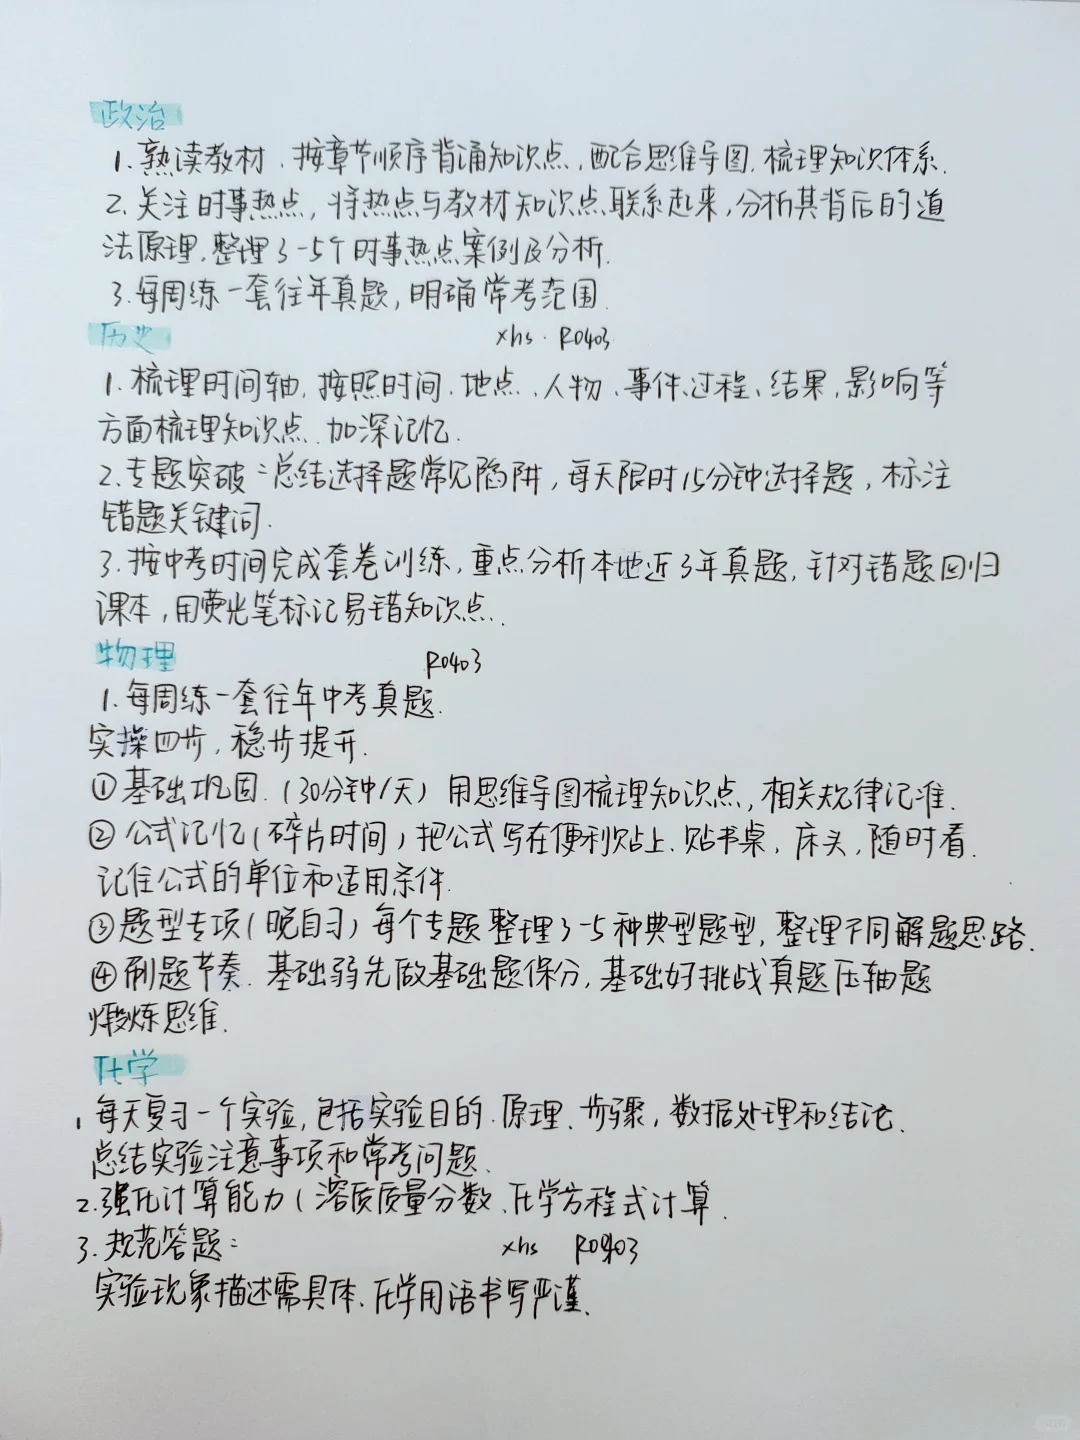 政治
1. 熟读教材、按章节顺序背诵知识点,配合思维导图.梳理知识体系.
2. 关注时事热点,将热点与教材知识点联系起来,分析其背后的道
法原理,整理3-5个时事热点案例及分析.
3. 每周练一套往年真题,明确常考范围.
历史
xhs. R0403
1. 梳理时间轴,按照时间、地点、人物、事件、过程、结果,影响等
方面梳理知识点、加深记忆.
2. 专题突破:总结选择题常见陷阱,每天限时15分钟选择题,标注
错题关键词.
3. 按中考时间完成套卷训练,重点分析本地近3年真题,针对错题回归
课本,用荧光笔标记易错知识点.
物理
R0403
1. 每周练一套往年中考真题.
实操四步,稳步提升.
①基础巩固.(30分钟/天)用思维导图梳理知识点,相关规律记准.
②公式记忆(碎片时间)把公式写在便利贴上、贴书桌,床头,随时看.
记住公式的单位和适用条件.
③题型专项(晚自习)每个专题整理3-5种典型题型,整理不同解题思路.
④刷题节奏.基础弱先做基础题保分,基础好挑战真题压轴题
煅炼思维.
化学
1. 每天复习一个实验,包括实验目的.原理、步骤,数据处理和结论.
总结实验注意事项和常考问题.
2. 强化计算能力(溶质质量分数、化学方程式计算.
3. 规范答题:
xhs R0403
实验现象描述需具体、化学用语书写严谨.